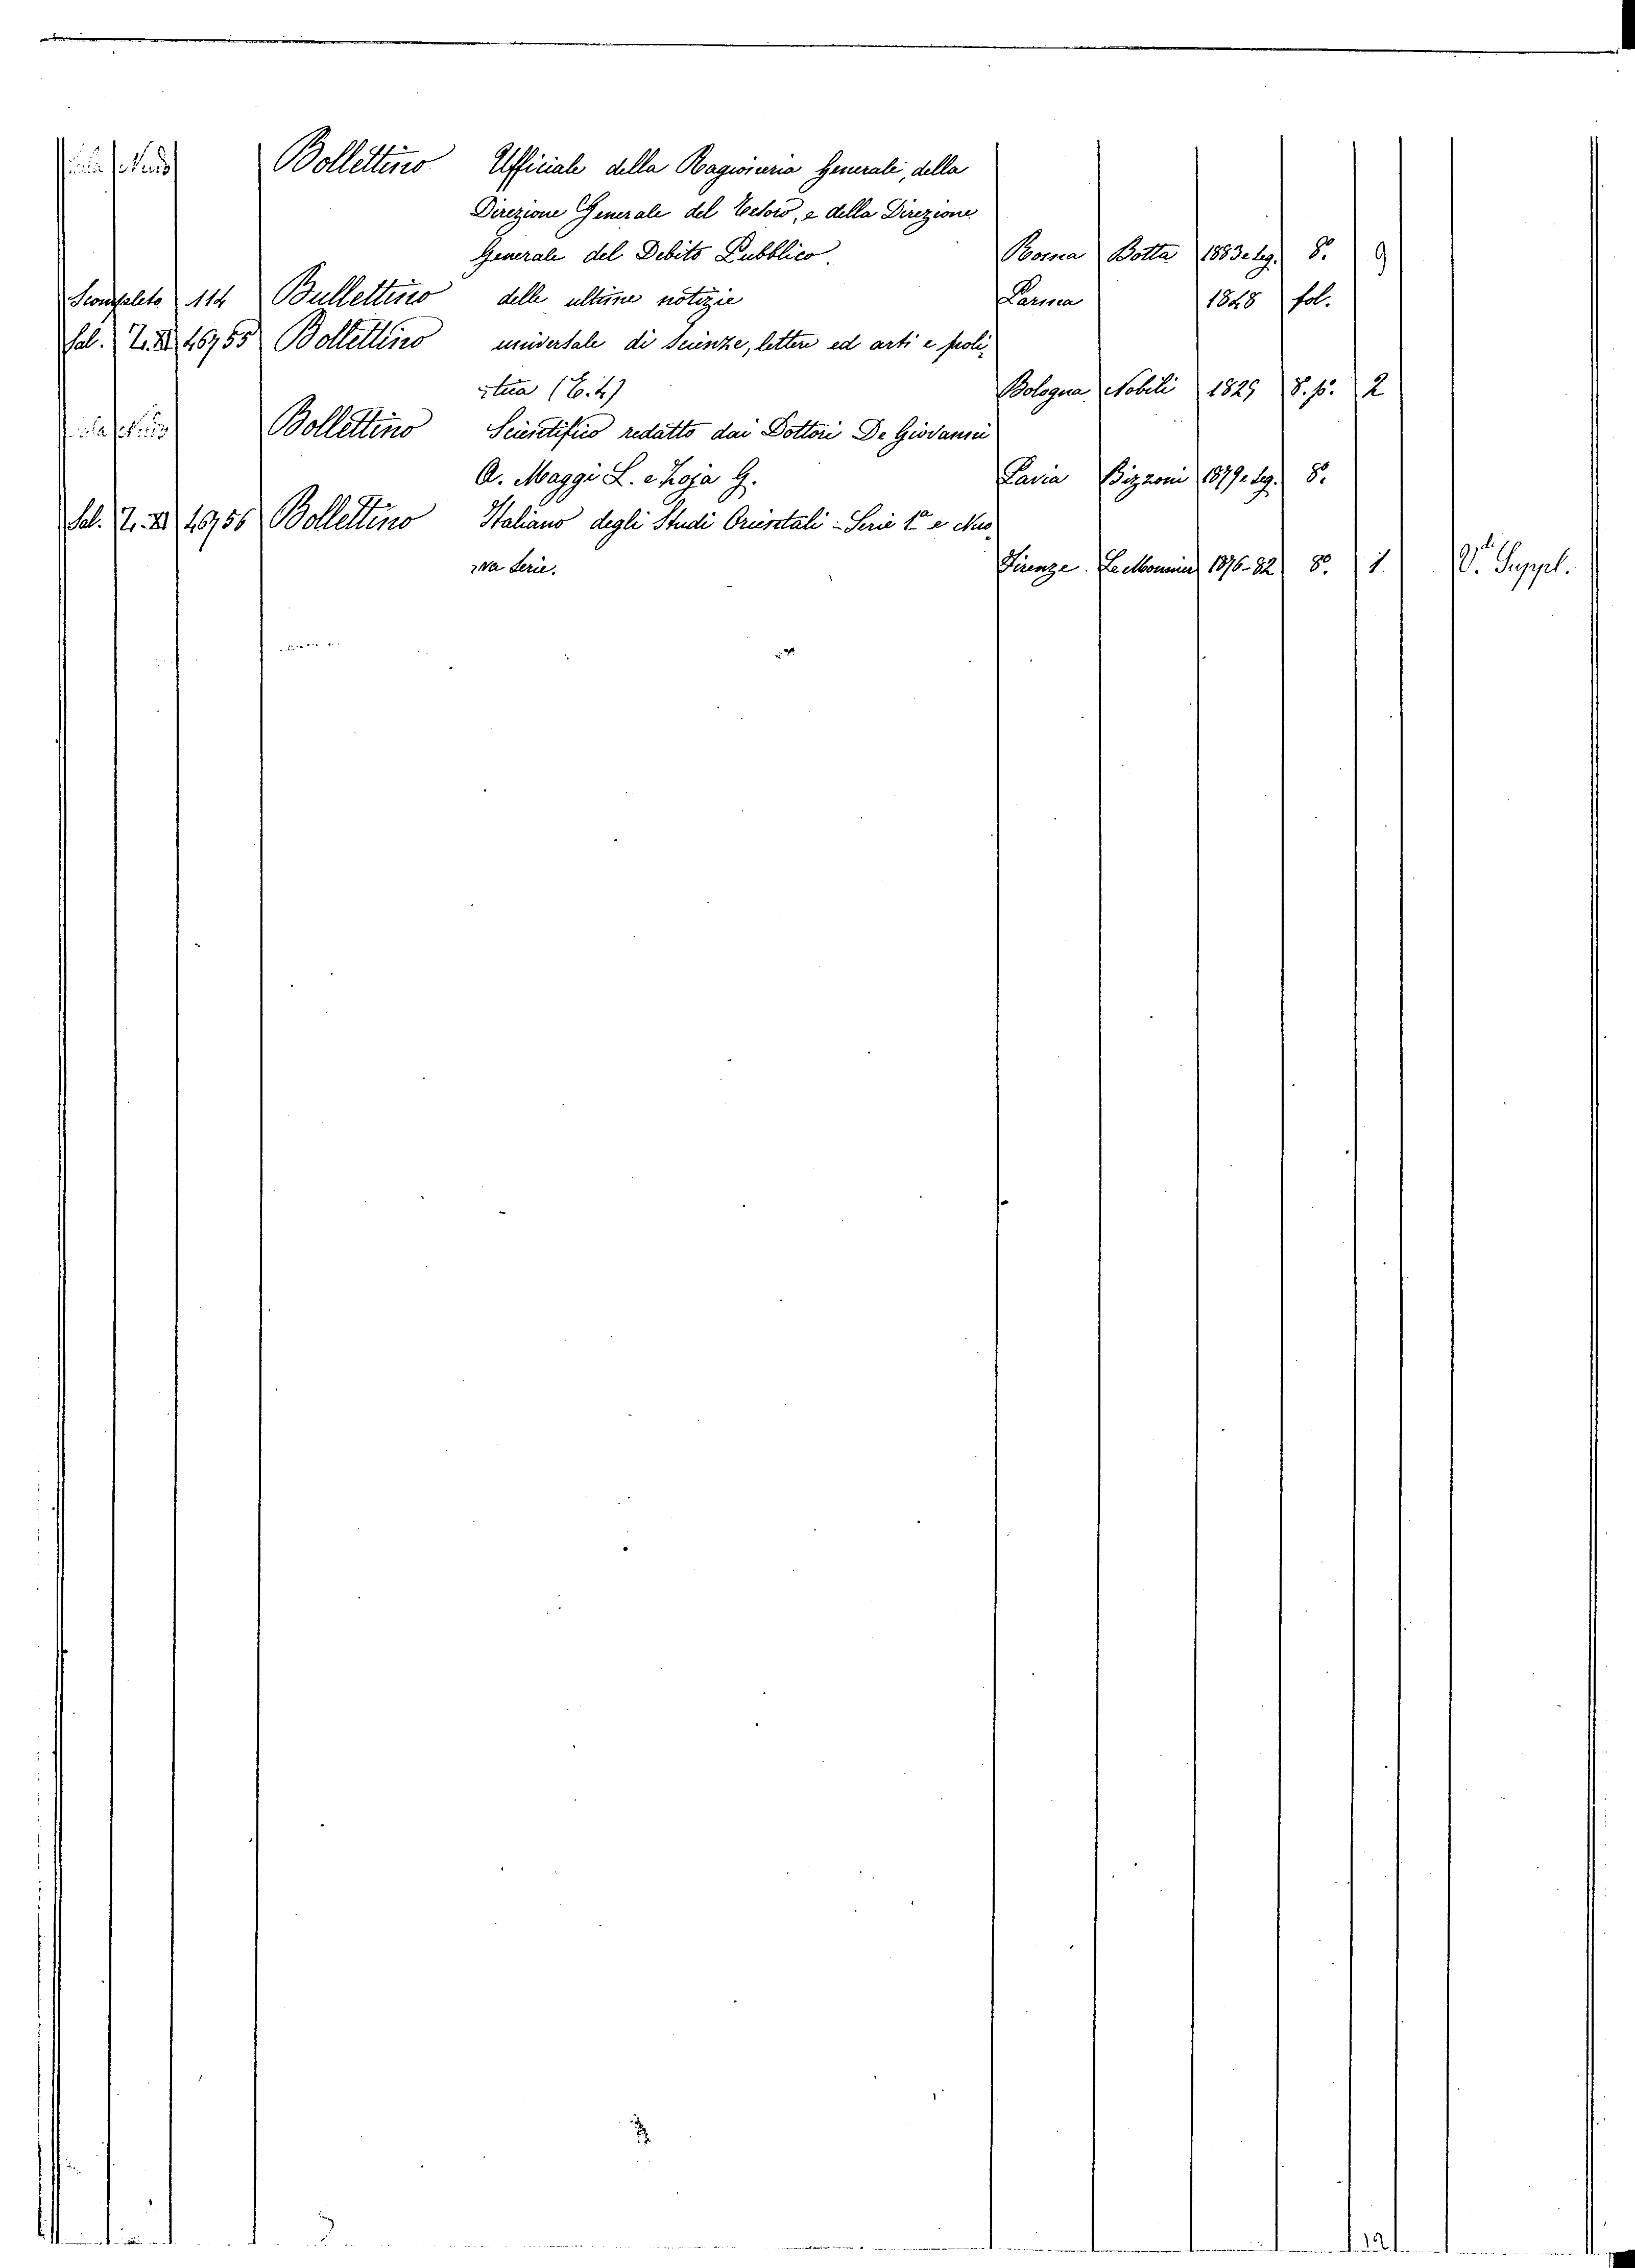 Bollettino Ufficiale della Ragioneria Generale, della
Direzione Generale del Tesoro, e della Direzione
Generale del Debito Pubblico. Roma Botta 1883 e seg. 8° 9
Scompleto 114 Bullettino delle ultime notizie Parma 1848 fol.
Sal. Z. XI 46755 Bollettino universale di Scienze, lettere ed arti e poli-
-tica (T. 2) Bologna Nobili 1829 8. p. 2
Bollettino Scientifico redatto dai Dottori De Giovanni
A. Maggi L. e Zoja G. Pavia Bizzoni 1879 e seg. 8°
Sal. Z. XI 46756 Bollettino Italiano degli Studi Orientali - Serie 1a e Nuo-
-va Serie. Firenze Le Monnier 1876-82 8° 1. V.di Suppl.
12